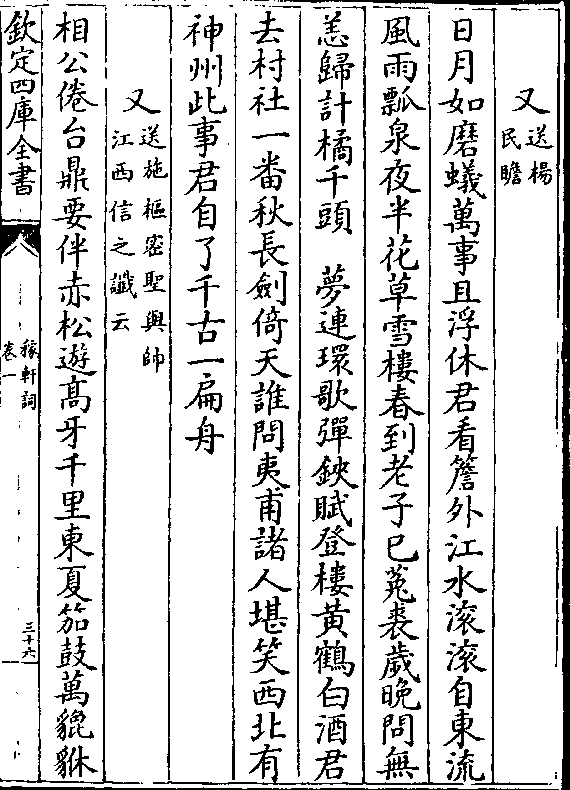 又送楊民瞻
日月如磨蟻萬事且浮休君看簷外江水滚滚自東流
風雨瓢泉夜半花草雪樓春到老子已菟裘歲晚問無
恙歸計橘千頭　夢連環歌彈鋏賦登樓黄鶴白酒君
去村社一番秋長劍倚天誰問夷甫諸人堪笑西北有
神州此事君自了千古一扁舟
又送施樞密聖與帥江西信之讖云
相公倦台鼎要伴赤松遊髙牙千里東夏笳鼓萬貔貅
欽定四庫全書
稼軒詞
卷一
三十六